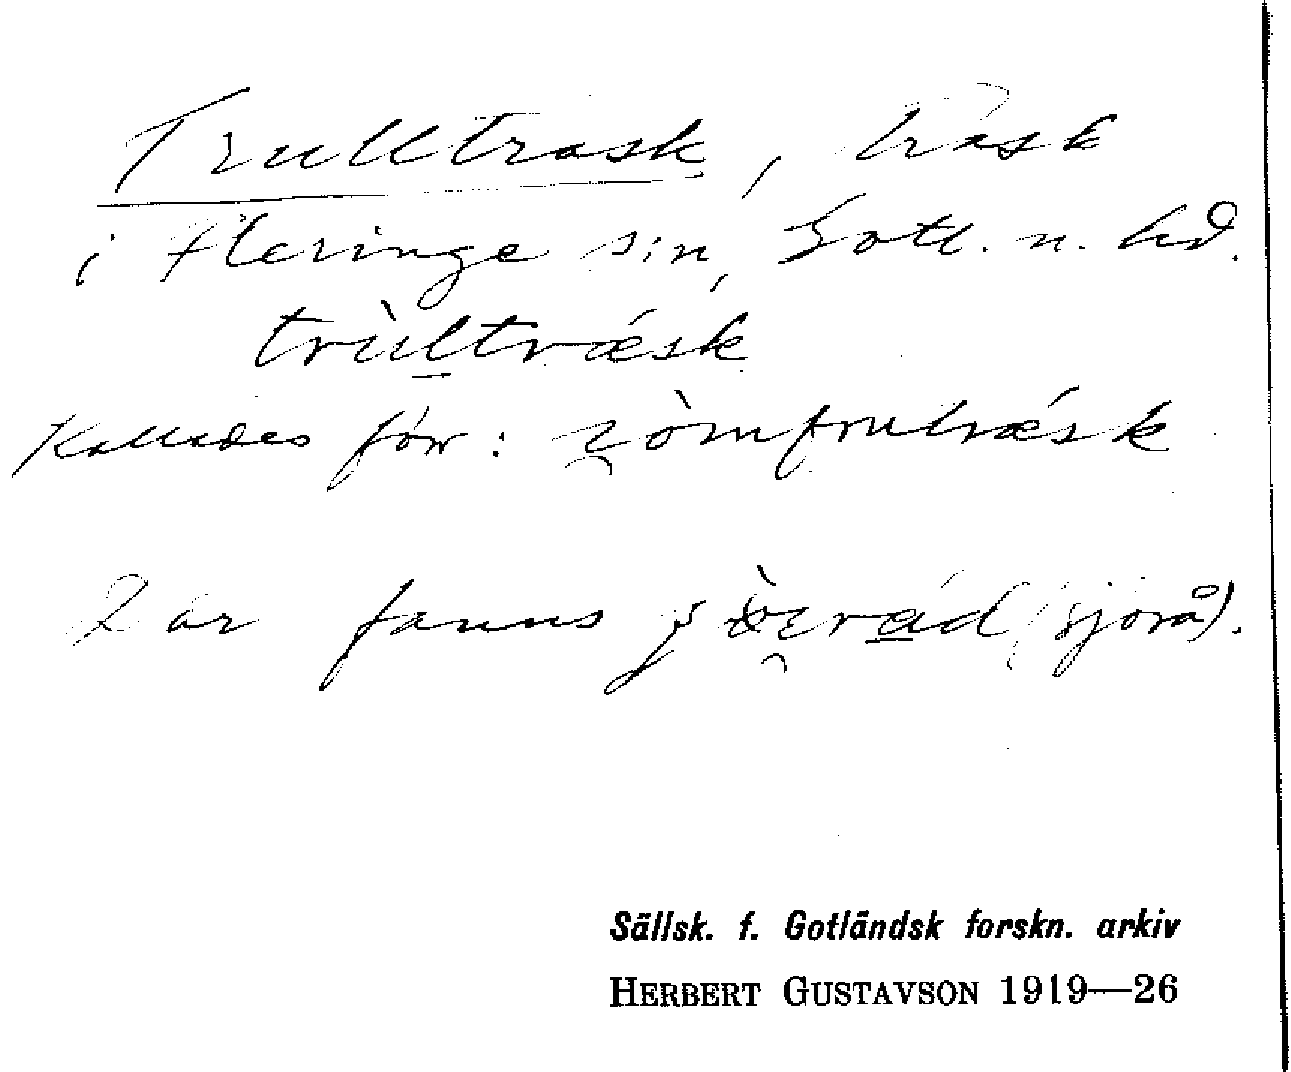 Trullträsk, träsk
i Fleringe s:n, Gotl. n. hd.
trùltræ̀sk
Kallades förr: jòmfrutræ̀sk
Där fanns sjöråd (sjörå).
Sällsk. f. Gotländsk forskn. arkiv
HERBERT GUSTAVSON 1919—26